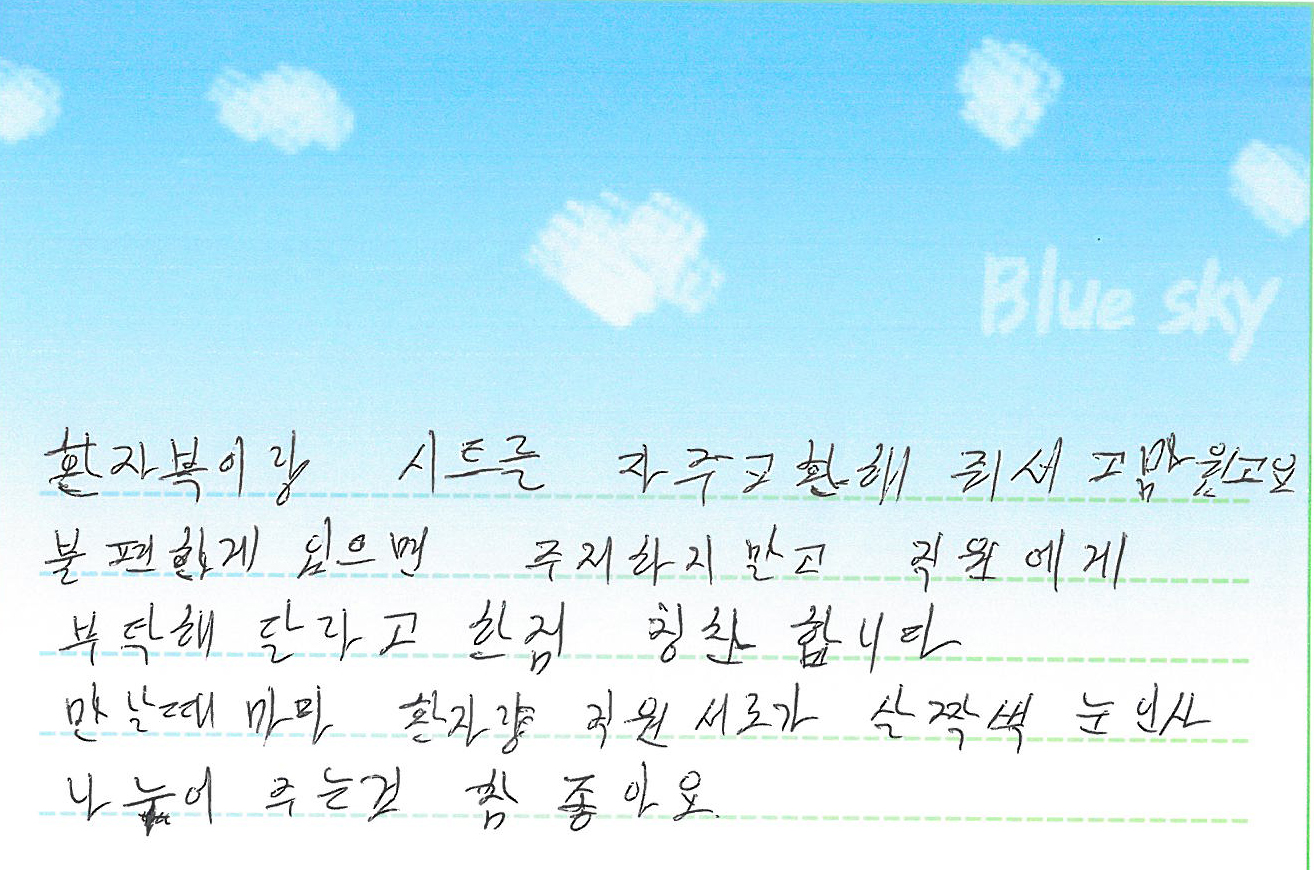 Blue sky
환자복이랑 시트를 자주교환해 줘서 고맙웠고요
불편한게 있으면 주저하지말고 직원에게
부탁해 달라고 한점 칭찬 합니다
만날때 마다 환자랑 직원 서로가 살짝색 눈인사
나눕어 주는건 참 좋아요.